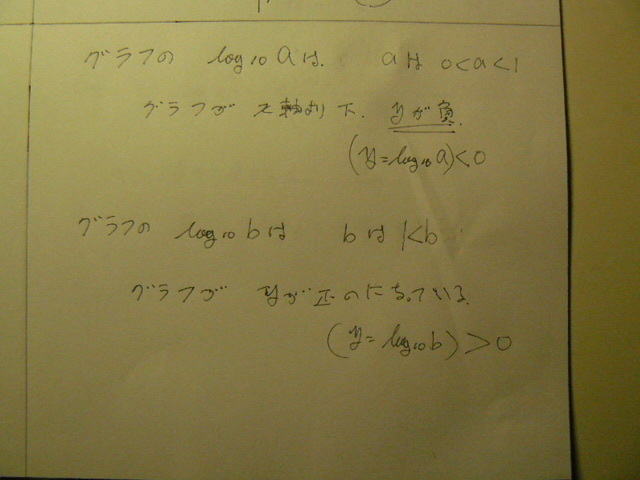 グラフの log₁₀ a は. a は 0<a<1
グラフが x軸より下. yが負.
(y=log₁₀ a)<0
グラフの log₁₀ b は b は 1<b
グラフが yが正の
(y=log₁₀ b)>0